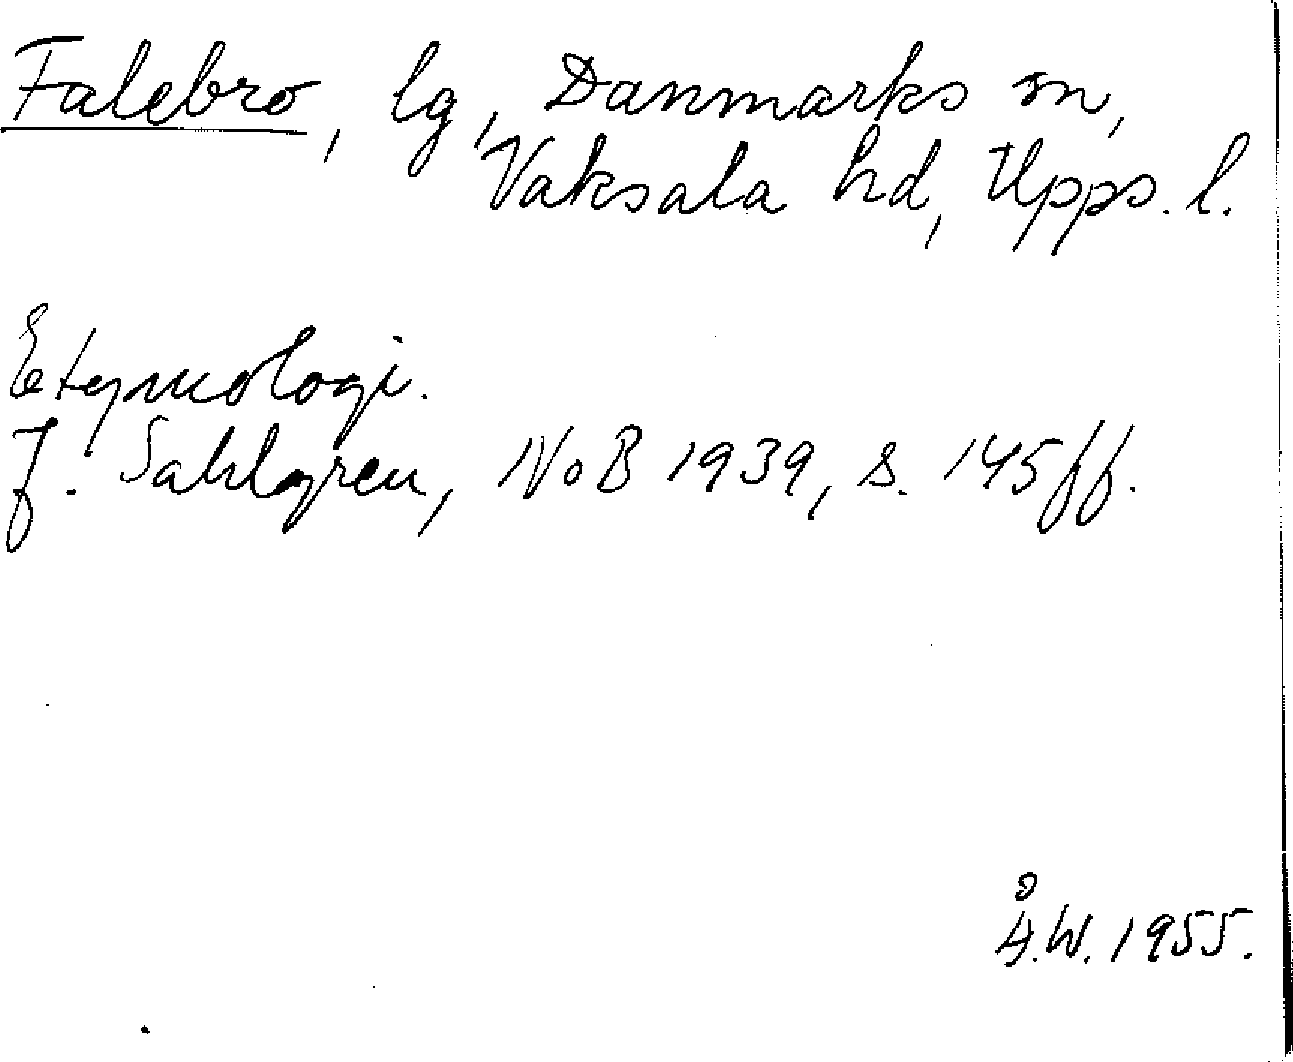 Falebro, lg, Danmarks sn,
Vaksala hd, Upps. l.
Etymologi.
J. Sahlgren, NoB 1939, s. 145 ff.
Å.W. 1955.